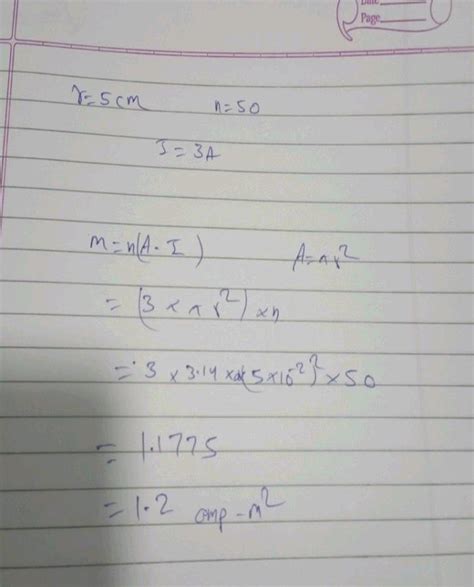 Date
Page
r=5cm n=50
I=3A
m=n(A·I) A=πr²
=(3×πr²)×n
=3×3.14×(5×10⁻²)²×50
=1.1775
=1.2 amp-m²